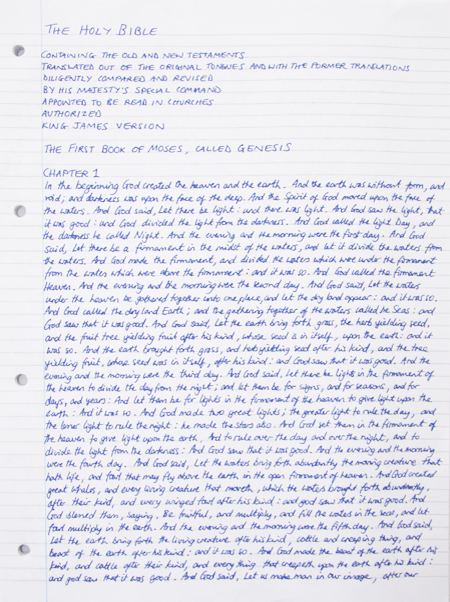 THE HOLY BIBLE
CONTAINING THE OLD AND NEW TESTAMENTS
TRANSLATED OUT OF THE ORIGINAL TONGUES AND WITH THE FORMER TRANSLATIONS
DILIGENTLY COMPARED AND REVISED
BY HIS MAJESTY'S SPECIAL COMMAND
APPOINTED TO BE READ IN CHURCHES
AUTHORIZED
KING JAMES VERSION
THE FIRST BOOK OF MOSES, CALLED GENESIS
CHAPTER 1
In the beginning God created the heaven and the earth. And the earth was without form, and
void; and darkness was upon the face of the deep. And the Spirit of God moved upon the face of
the waters. And God said, Let there be light: and there was light. And God saw the light, that
it was good: and God divided the light from the darkness. And God called the light Day, and
the darkness he called Night. And the evening and the morning were the first day. And God
said, Let there be a firmament in the midst of the waters, and let it divide the waters from
the waters. And God made the firmament, and divided the waters which were under the firmament
from the waters which were above the firmament: and it was so. And God called the firmament
Heaven. And the evening and the morning were the second day. And God said, Let the waters
under the heaven be gathered together unto one place, and let the dry land appear: and it was so.
And God called the dry land Earth; and the gathering together of the waters called he Seas: and
God saw that it was good. And God said, Let the earth bring forth grass, the herb yielding seed,
and the fruit tree yielding fruit after his kind, whose seed is in itself, upon the earth: and it
was so. And the earth brought forth grass, and herb yielding seed after his kind, and the tree
yielding fruit, whose seed was in itself, after his kind: and God saw that it was good. And the
evening and the morning were the third day. And God said, Let there be lights in the firmament of
the heaven to divide the day from the night; and let them be for signs, and for seasons, and for
days, and years: And let them be for lights in the firmament of the heaven to give light upon the
earth: And it was so. And God made two great lights; the greater light to rule the day, and
the lesser light to rule the night: he made the stars also. And God set them in the firmament of
the heaven to give light upon the earth, And to rule over the day and over the night, and to
divide the light from the darkness: And God saw that it was good. And the evening and the morning
were the fourth day. And God said, Let the waters bring forth abundantly the moving creature that
hath life, and fowl that may fly above the earth in the open firmament of heaven. And God created
great whales, and every living creature that moveth, which the waters brought forth abundantly,
after their kind, and every winged fowl after his kind: and god saw that it was good. And
God blessed them, saying, Be fruitful, and multiply, and fill the waters in the seas, and let
fowl multiply in the earth. And the evening and the morning were the fifth day. And God said,
Let the earth bring forth the living creature after his kind, cattle and creeping thing, and
beast of the earth after his kind: and it was so. And God made the beast of the earth after his
kind, and cattle after their kind, and every thing that creepeth upon the earth after his kind:
and god saw that it was good. And God said, Let us make man in our image, after our